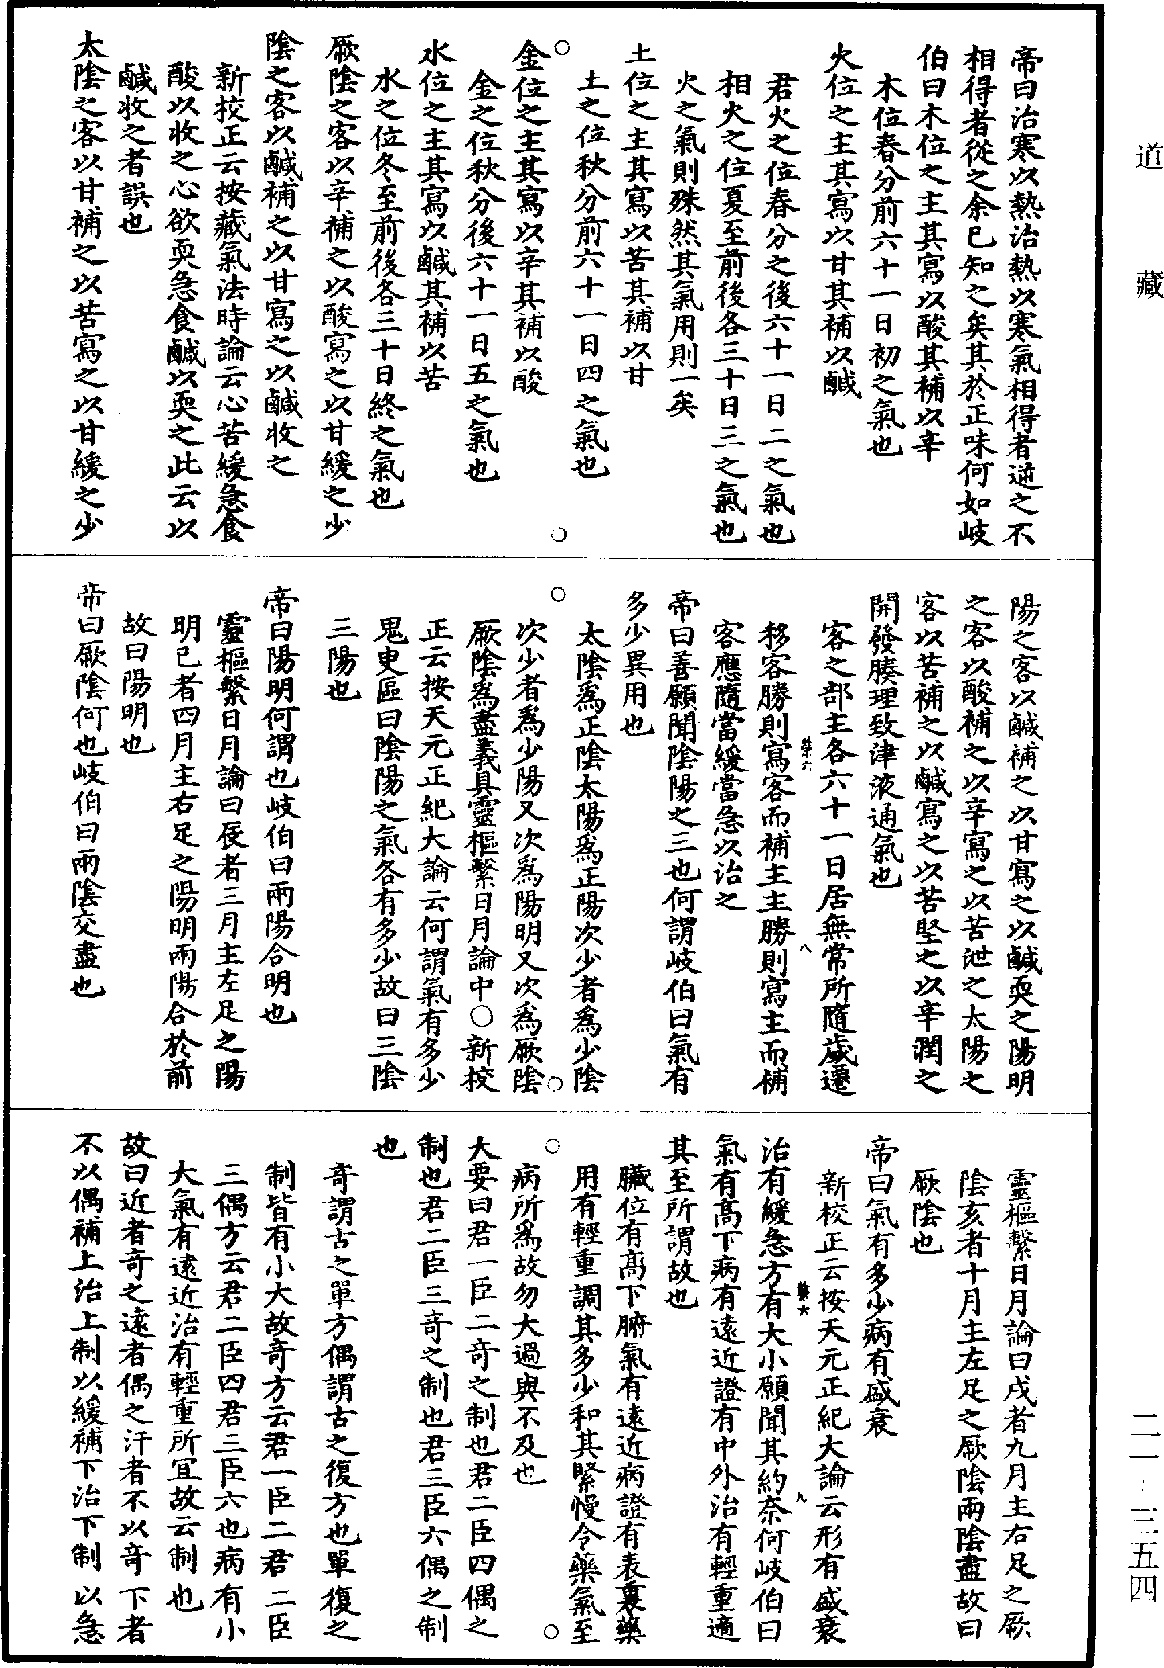 道藏
帝曰治寒以熱治熱以寒氣相得者逆之不
相得者從之余已知之矣其於正味何如岐
伯曰木位之主其寫以酸其補以辛
木位春分前六十一日初之氣也
火位之主其寫以甘其補以鹹
君火之位春分之後六十一日二之氣也
相火之位夏至前後各三十日三之氣也
火之氣則殊然其氣用則一矣
土位之主其寫以苦其補以甘
土之位秋分前六十一日四之氣也
金位之主其寫以辛其補以酸
金之位秋分後六十一日五之氣也
水位之主其寫以鹹其補以苦
水之位冬至前後各三十日終之氣也
厥陰之客以辛補之以酸寫之以甘緩之少
陰之客以鹹補之以甘寫之以鹹收之
新校正云按藏氣法時論云心苦緩急食
酸以收之心欲耎急食鹹以耎之此云以
鹹收之者誤也
太陰之客以甘補之以苦寫之以甘緩之少
陽之客以鹹補之以甘寫之以鹹耎之陽明
之客以酸補之以辛寫之以苦泄之太陽之
客以苦補之以鹹寫之以苦堅之以辛潤之
開發腠理致津液通氣也
客之部主各六十一日居無常所隨歲遷
移客勝則寫客而補主主勝則寫主而補
客應隨當緩當急以治之
帝曰善願聞陰陽之三也何謂岐伯曰氣有
多少異用也
太陰爲正陰太陽爲正陽次少者爲少陰
次少者爲少陽又次爲陽明又次爲厥陰
厥陰爲盡義具靈樞繫日月論中○新校
正云按天元正紀大論云何謂氣有多少
鬼臾區曰陰陽之氣各有多少故曰三陰
三陽也
帝曰陽明何謂也岐伯曰兩陽合明也
靈樞繫日月論曰辰者三月主左足之陽
明巳者四月主右足之陽明兩陽合於前
故曰陽明也
帝曰厥陰何也岐伯曰兩陰交盡也
靈樞繫日月論曰戌者九月主右足之厥
陰亥者十月主左足之厥陰兩陰盡故曰
厥陰也
帝曰氣有多少病有盛衰
新校正云按天元正紀大論云形有盛衰
治有緩急方有大小願聞其約奈何岐伯曰
氣有高下病有遠近證有中外治有輕重適
其至所謂故也
臟位有高下腑氣有遠近病證有表裏藥
用有輕重調其多少和其緊慢令藥氣至
病所爲故勿大過與不及也
大要曰君一臣二奇之制也君二臣四偶之
制也君二臣三奇之制也君三臣六偶之制
也
奇謂古之單方偶謂古之復方也單復之
制皆有小大故奇方云君一臣二君二臣
三偶方云君二臣四君三臣六也病有小
大氣有遠近治有輕重所宜故云制也
故曰近者奇之遠者偶之汗者不以奇下者
不以偶補上治上制以緩補下治下制以急
二一·三五四